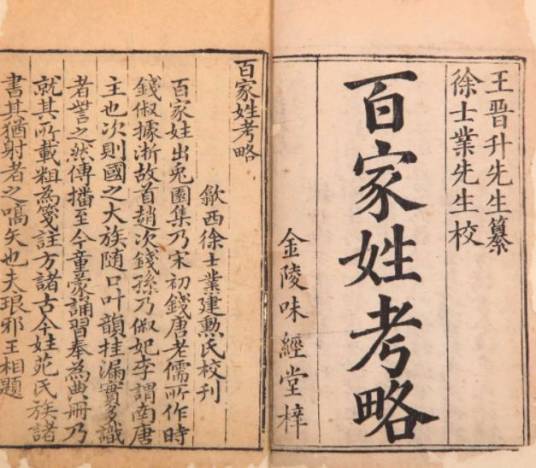 王晉升先生纂
徐士業先生校
百家姓考略
金陵味經堂梓
百家姓考略
歙西徐士業建勲氏校刊
百家姓出兎園集乃宋初錢唐老儒所作時
錢俶據浙故首趙次錢孫乃俶妃李謂南唐
主也次則國之大族隨口叶韻挂漏實多識
者訾之然傳播至今童蒙誦習奉為典冊乃
就其所載粗為箋註方諸古今姓苑氏族諸
書其猶射者之嚆矢也夫琅邪王相題